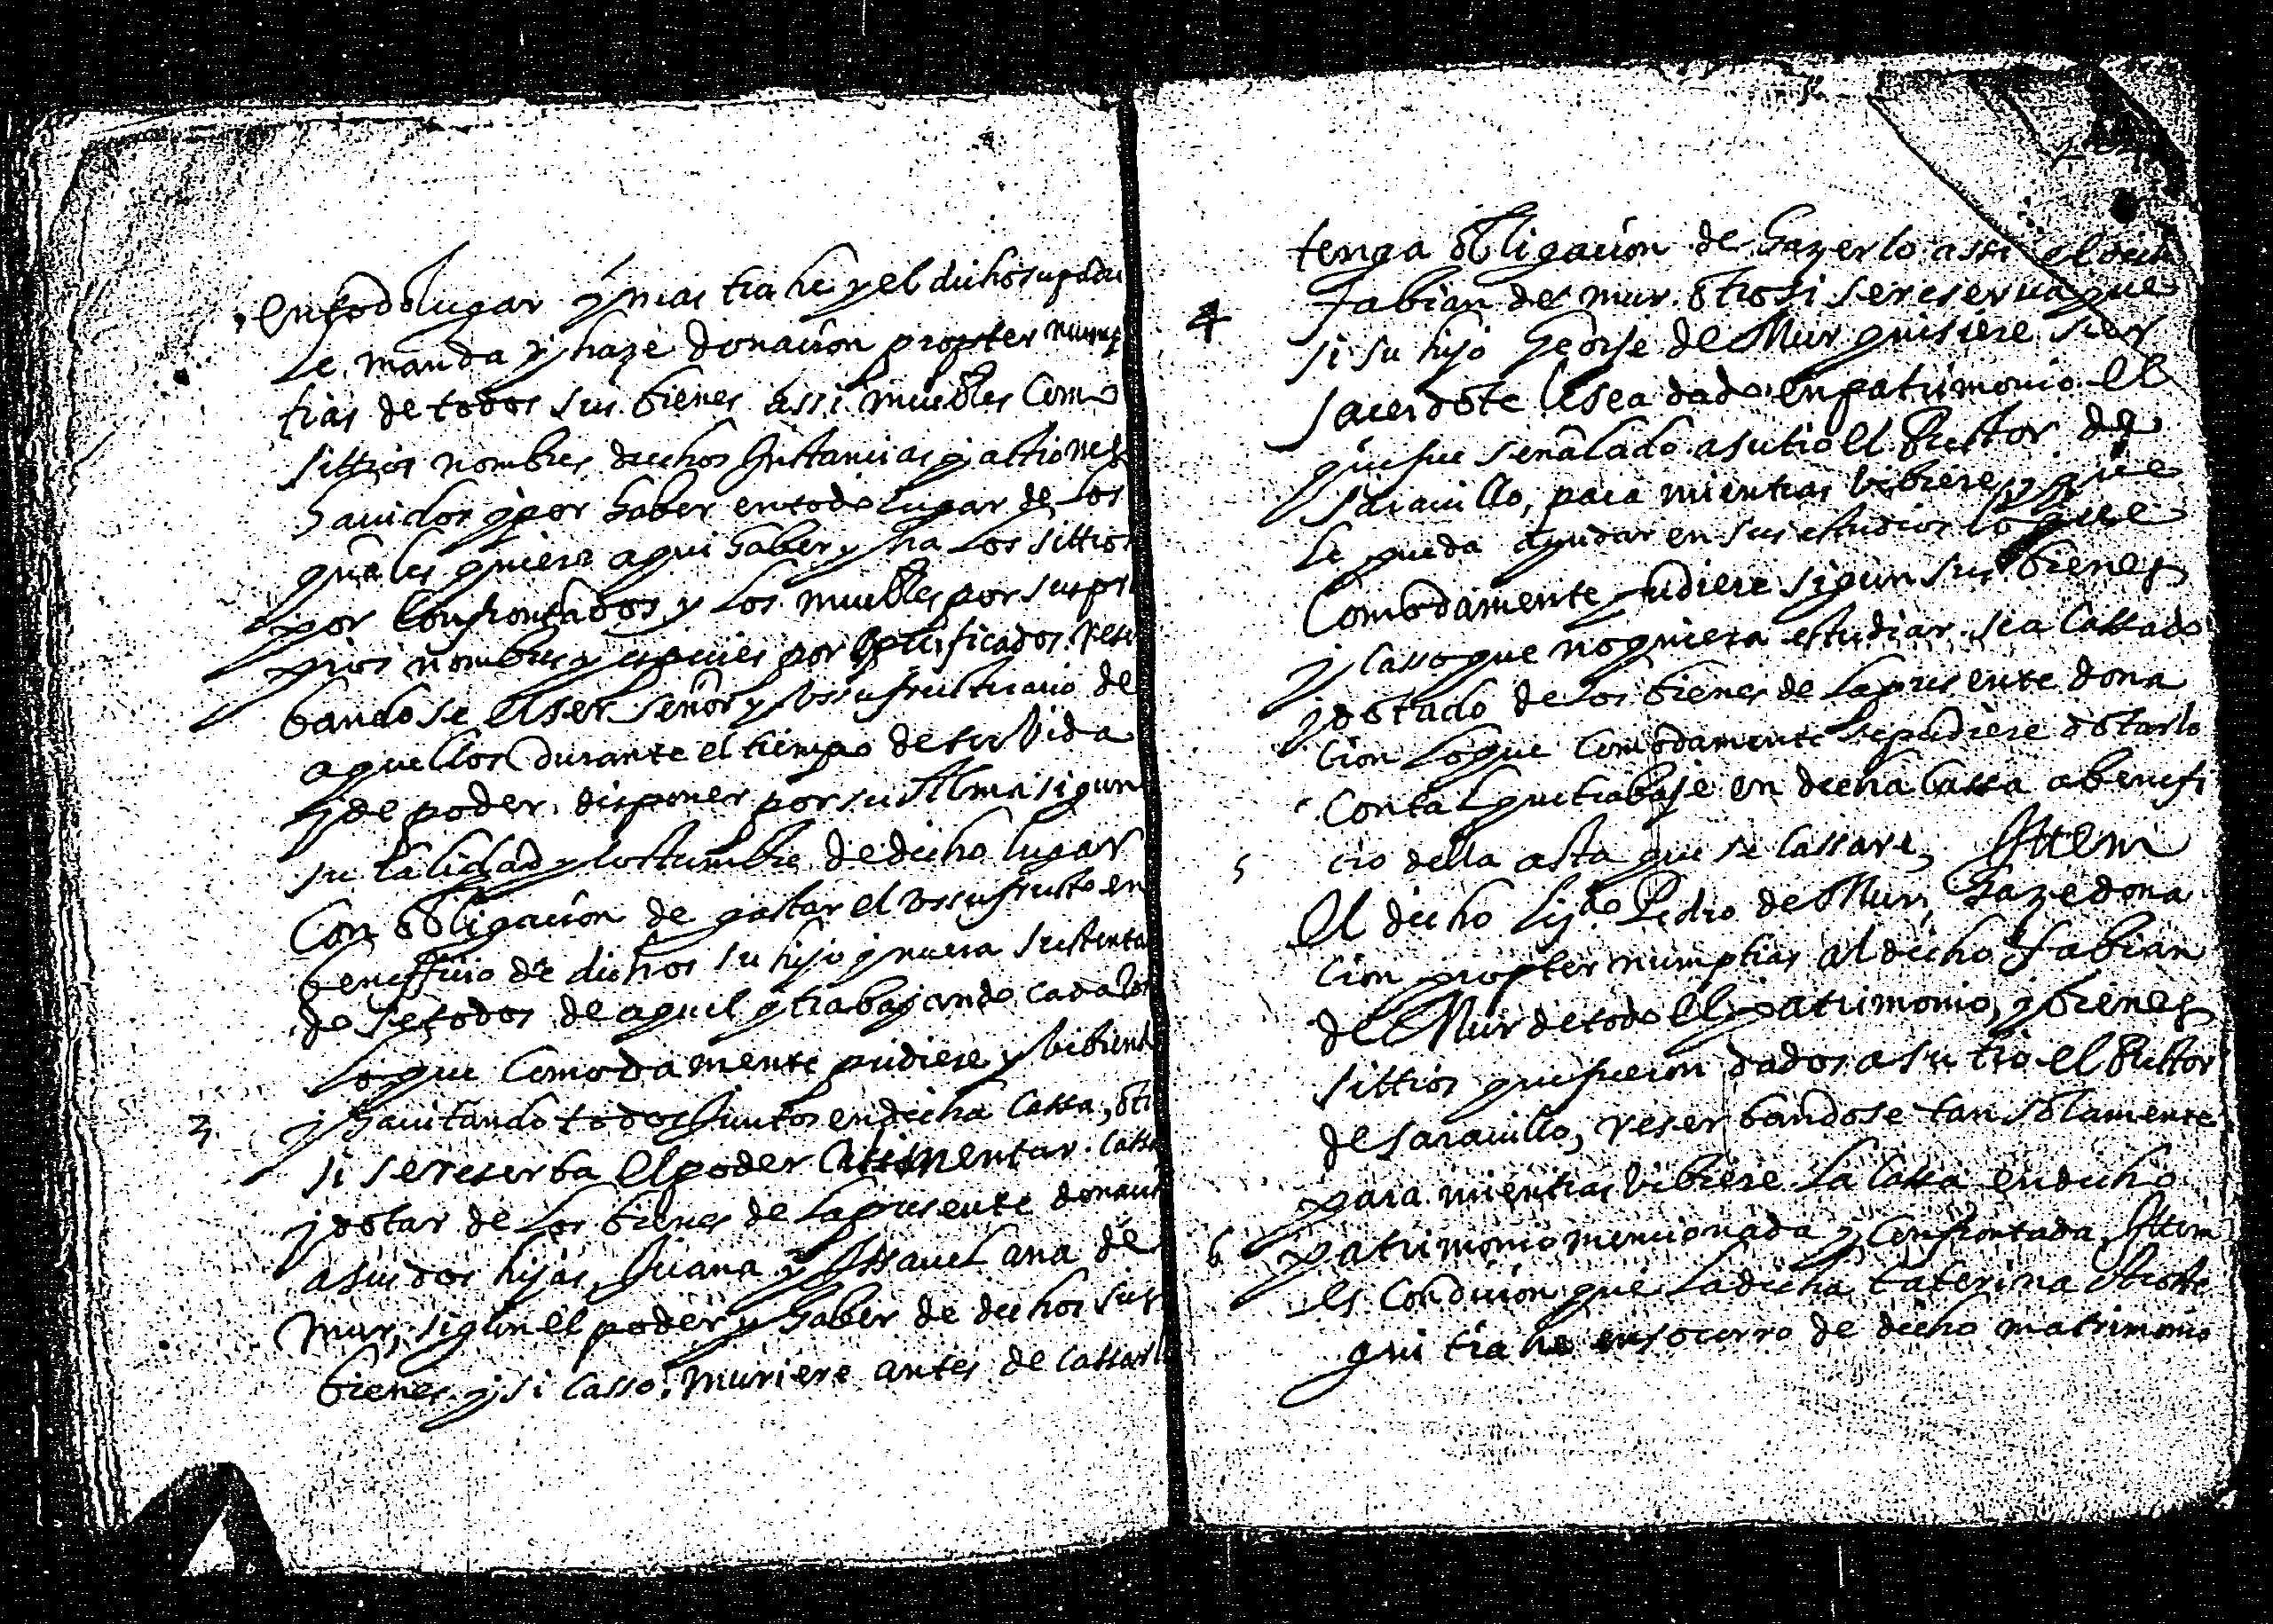 en todo lugar y mas trahe y el dicho su padre
le manda y haze donacion propter nump
tias de todos sus bienes assi muebles Como
sittios nombres drechos Instancias y actiones
havidos y por haber en todo lugar de los
quales quiere aqui haber y ha los sittios
por Confrontados y los muebles por sus pro
prios nombres y especies por especificados reser
bandose el ser señor y ussufructuario de
aquellos durante el tiempo de su Vida
y de poder disponer por su Alma sigun
su Calidad y Costumbre de dicho lugar
Con obligacion de gastar el ussufructo en
benefficio de dichos su hijo y nuera sustentan
dose todos de aquel y trabajando cada
lo que Comodamente pudiere y bibiendo
3 y havitando todos Juntos en dicha Cassa, otro
si se reserba el poder alimentar Cassar
y dotar de los bienes de la presente donacion
a sus dos hijas, Juana y Issavel Ana de
Mur, sigun el poder y haber de dichos sus
bienes y si Casso muriere antes de Cassarla
tenga obligacion de hazerlo assi el dicho
4 Fabian de mur. otrosi se reserva que
si su hijo George de Mur quisiere ser
sacerdote le sea dado en patrimonio el
que fue señalado a su tio el Rector de
Saravillo, para mientras bibiere y que
le pueda ayudar en sus estudios lo que
Comodamente pudiere sigun sus bienes
y Casso que no quiera estudiar sea Cassado
y dotado de los bienes de la presente dona
cion lo que Comodamente se pudiere dotarlo
Con tal que trabaje en dicha Cassa a benefi
5 cio della asta que se Cassare, Ittem
El dicho Liz.do Pedro de Mur, haze dona
cion propter numptias al dicho Fabian
de Mur de todo el patrimonio, y bienes
sittios que fueron dados a su tio el Rector
de Saravillo, reserbandose tan solamente
para mientras bibiere la Cassa en dicho
6 patrimonio mencionada y Confrontada, Ittem
es Condicion que la dicha Caterina
que trahe en socorro de dicho matrimonio